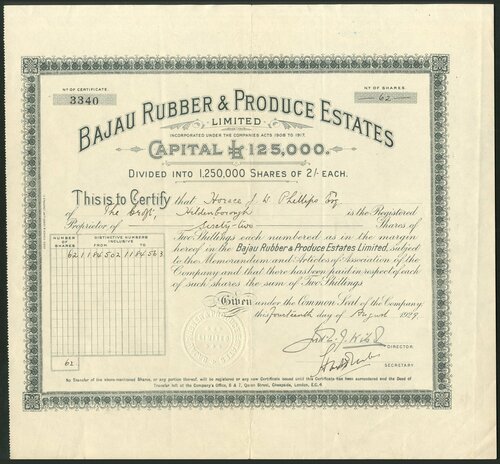 No. OF CERTIFICATE.
3340
No. OF SHARES.
62
BAJAU RUBBER & PRODUCE ESTATES
LIMITED
INCORPORATED UNDER THE COMPANIES ACTS 1908 TO 1917.
CAPITAL £125,000.
DIVIDED INTO 1,250,000 SHARES OF 2/- EACH.
This is to Certify that Horace J. W. Phillips Esq
of The Croft, Hildenborough is the Registered
Proprietor of Sixty-two Shares of
Two Shillings each numbered as in the margin
hereof in the Bajau Rubber & Produce Estates Limited, subject
to the Memorandum and Articles of Association of the
Company and that there has been paid in respect of each
of such shares the sum of Two Shillings
NUMBER OF SHARES
DISTINCTIVE NUMBERS INCLUSIVE
FROM TO
62 1184502 1184563
62
Given under the Common Seal of the Company
this fourteenth day of August 1929.
DIRECTOR
SECRETARY.
No Transfer of the above-mentioned Shares, or any portion thereof, will be registered or any new Certificate issued until this Certificate has been surrendered and the Deed of
Transfer left at the Company's Office, 6 & 7, Queen Street, Cheapside, London, E.C.4.